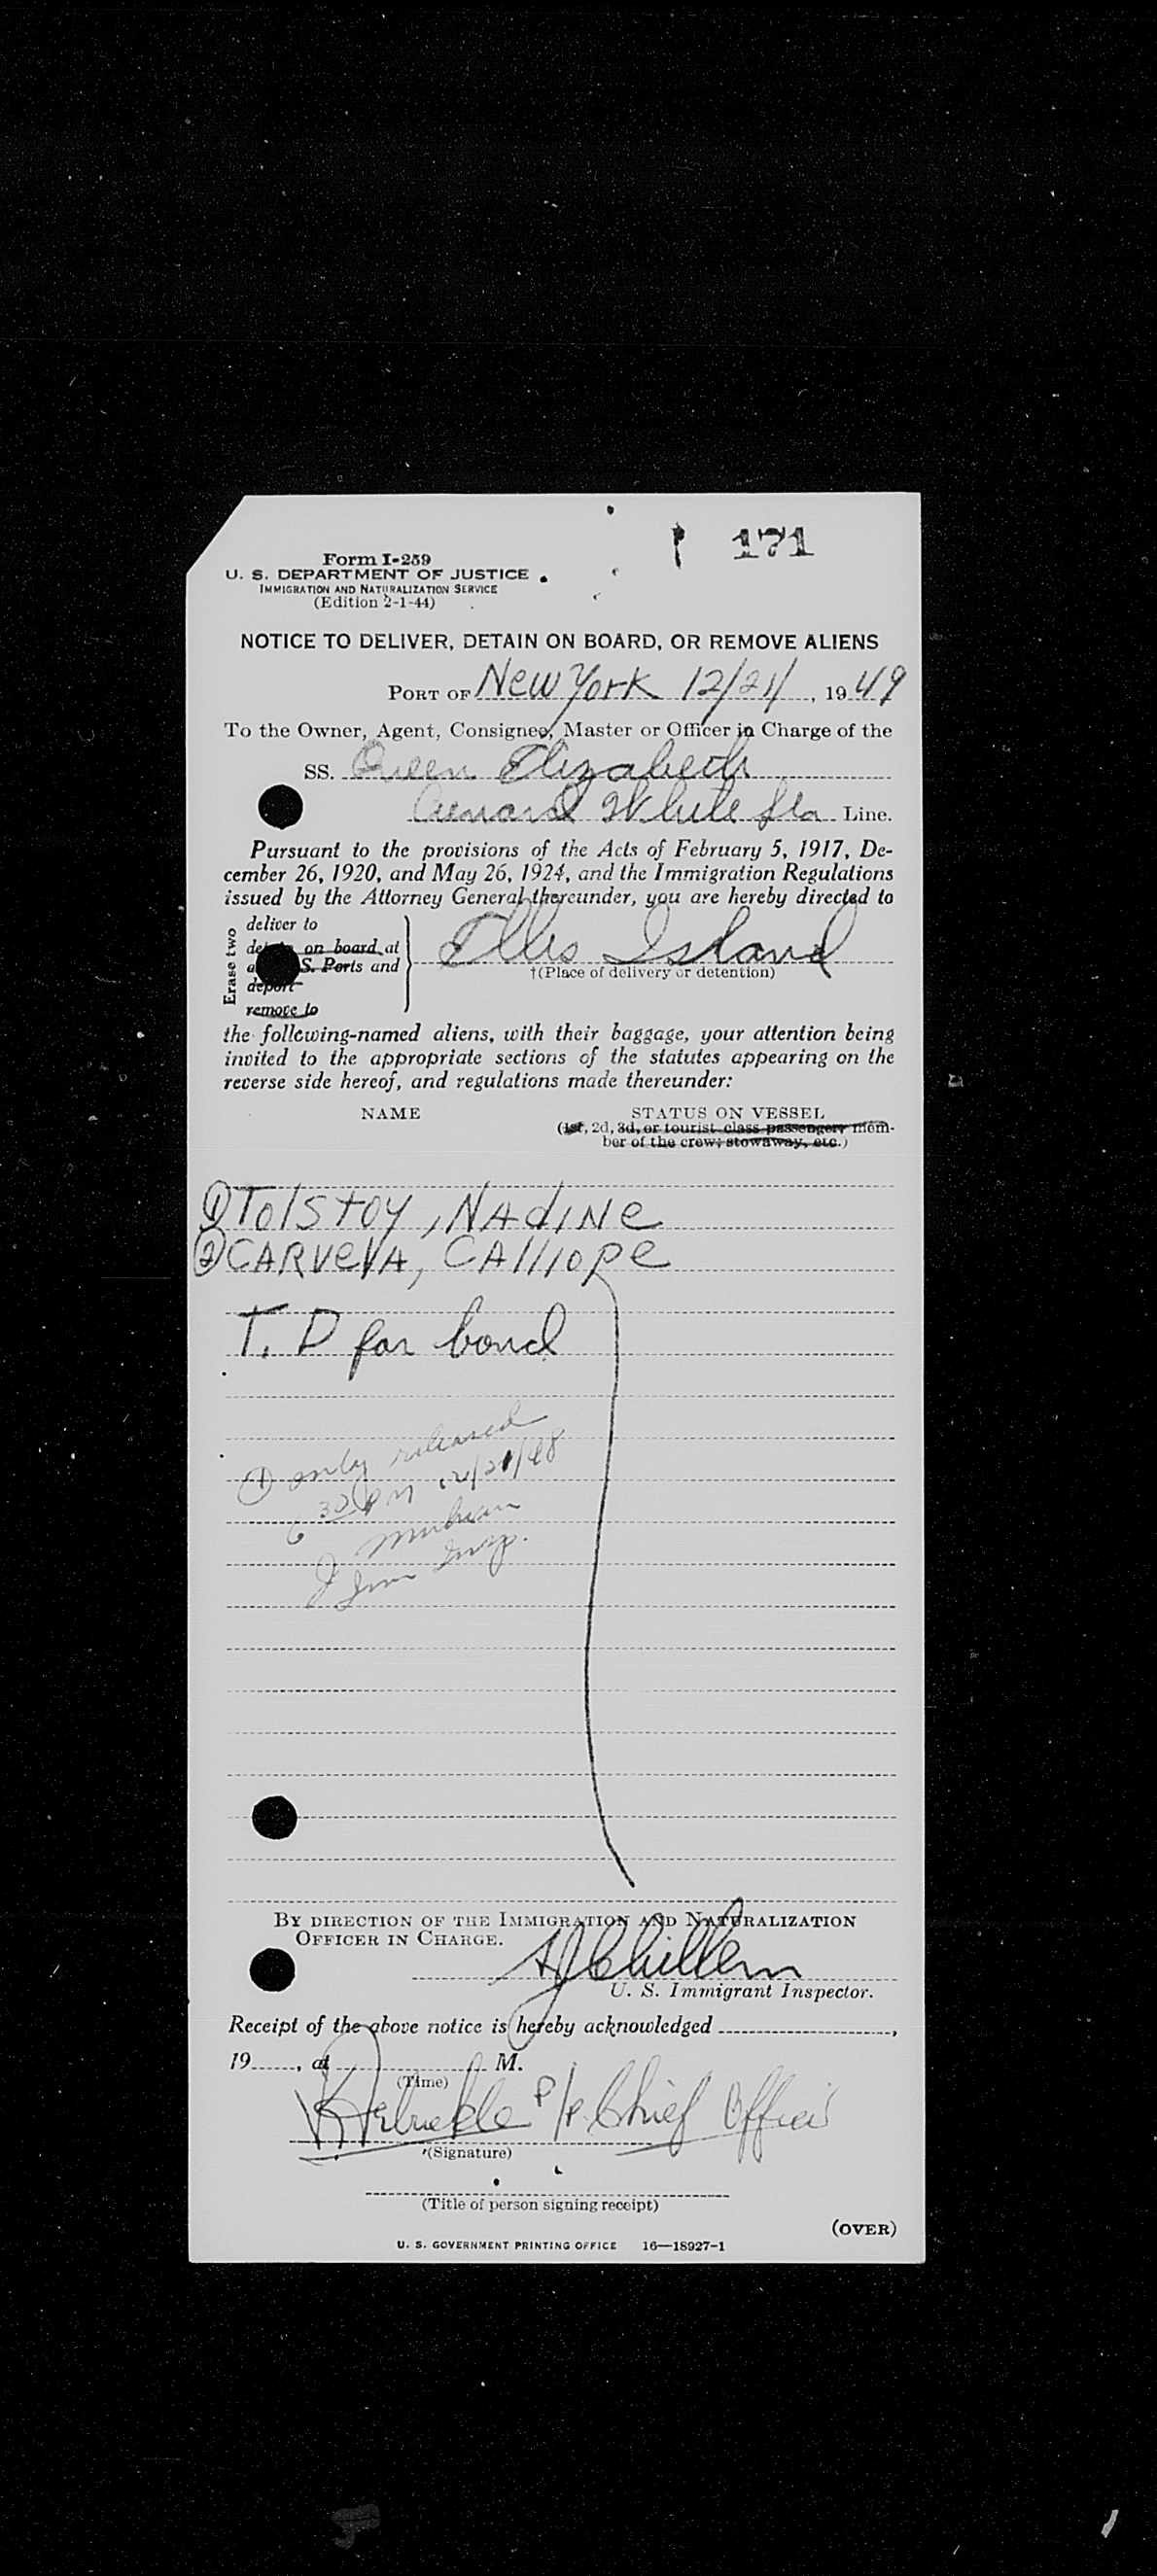 171
Form I-259
U. S. DEPARTMENT OF JUSTICE
IMMIGRATION AND NATURALIZATION SERVICE
(Edition 2-1-44)
NOTICE TO DELIVER, DETAIN ON BOARD, OR REMOVE ALIENS
PORT OF New York 12/21/, 1949
To the Owner, Agent, Consignee, Master or Officer in Charge of the
SS. Queen Elizabeth
Cunard White Sta Line.
Pursuant to the provisions of the Acts of February 5, 1917, De-
cember 26, 1920, and May 26, 1924, and the Immigration Regulations
issued by the Attorney General thereunder, you are hereby directed to
Erase two
deliver to
on board at
S. Ports and
deport
remove to
Ellis Island
†(Place of delivery or detention)
the following-named aliens, with their baggage, your attention being
invited to the appropriate sections of the statutes appearing on the
reverse side hereof, and regulations made thereunder:
NAME STATUS ON VESSEL
(1st, 2d, 3d, or tourist class passenger; mem-
ber of the crew; stowaway, etc.)
① Tolstoy, Nadine
② Carvela, Calliope
T. D for bond
① only released
6 30 PM 12/21/48
Imm Insp.
BY DIRECTION OF THE IMMIGRATION AND NATURALIZATION
OFFICER IN CHARGE.
U. S. Immigrant Inspector.
Receipt of the above notice is hereby acknowledged ,
19 , at M.
(Time)
P/p Chief Officer
(Signature)
(Title of person signing receipt)
(OVER)
U. S. GOVERNMENT PRINTING OFFICE 16—18927-1